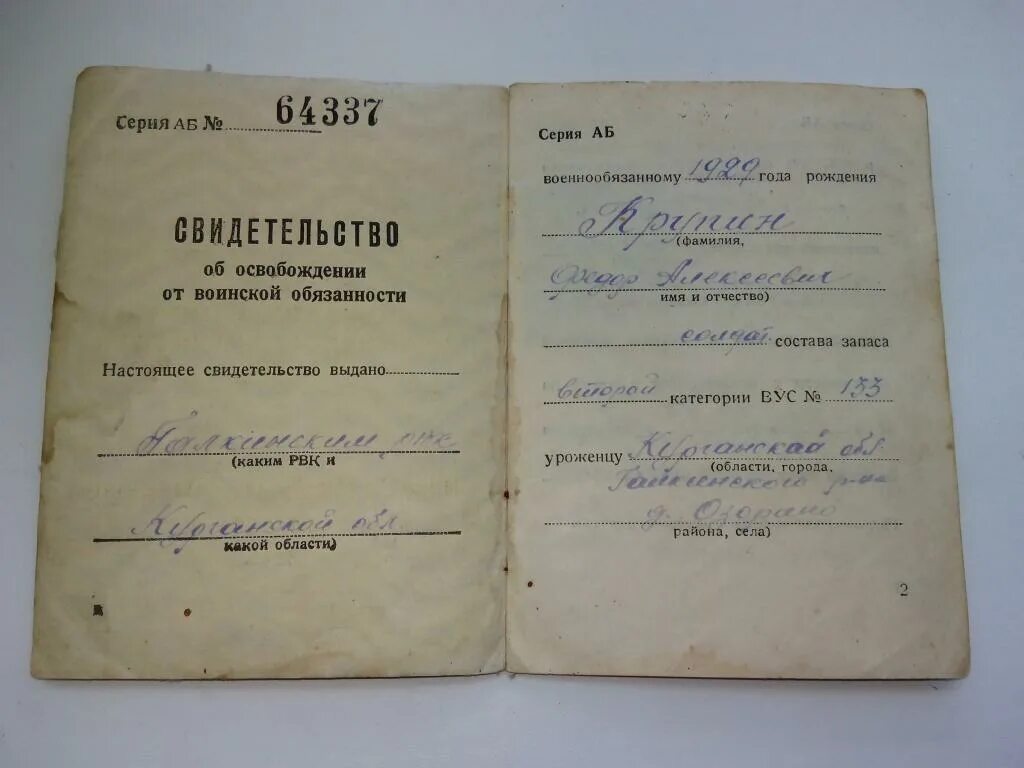 Серия АБ № 64337
СВИДЕТЕЛЬСТВО
об освобождении
от воинской обязанности
Настоящее свидетельство выдано
Галкинским рвк
(каким РВК и
Курганской обл.
какой области)
Серия АБ
военнообязанному 1929 года рождения
Крупин
(фамилия,
Федор Алексеевич
имя и отчество)
солдат состава запаса
второй категории ВУС № 133
уроженцу Курганской обл
(области, города,
Галкинского р-на
д.
района, села)
2